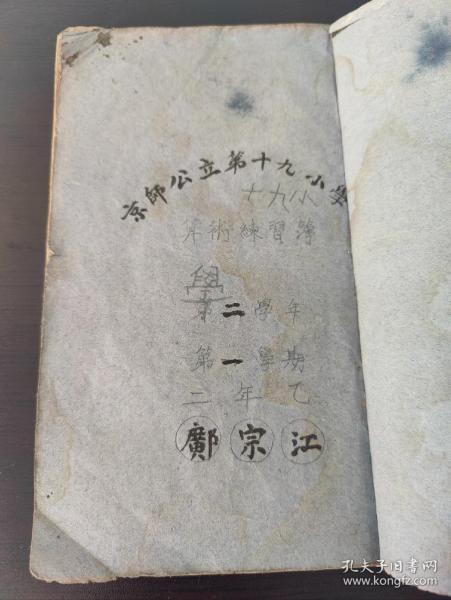 京師公立第十九小學
十九小
算術練習簿
學
第二學年
第一學期
二年乙
鄺宗江
孔夫子旧书网
www.kongfz.com